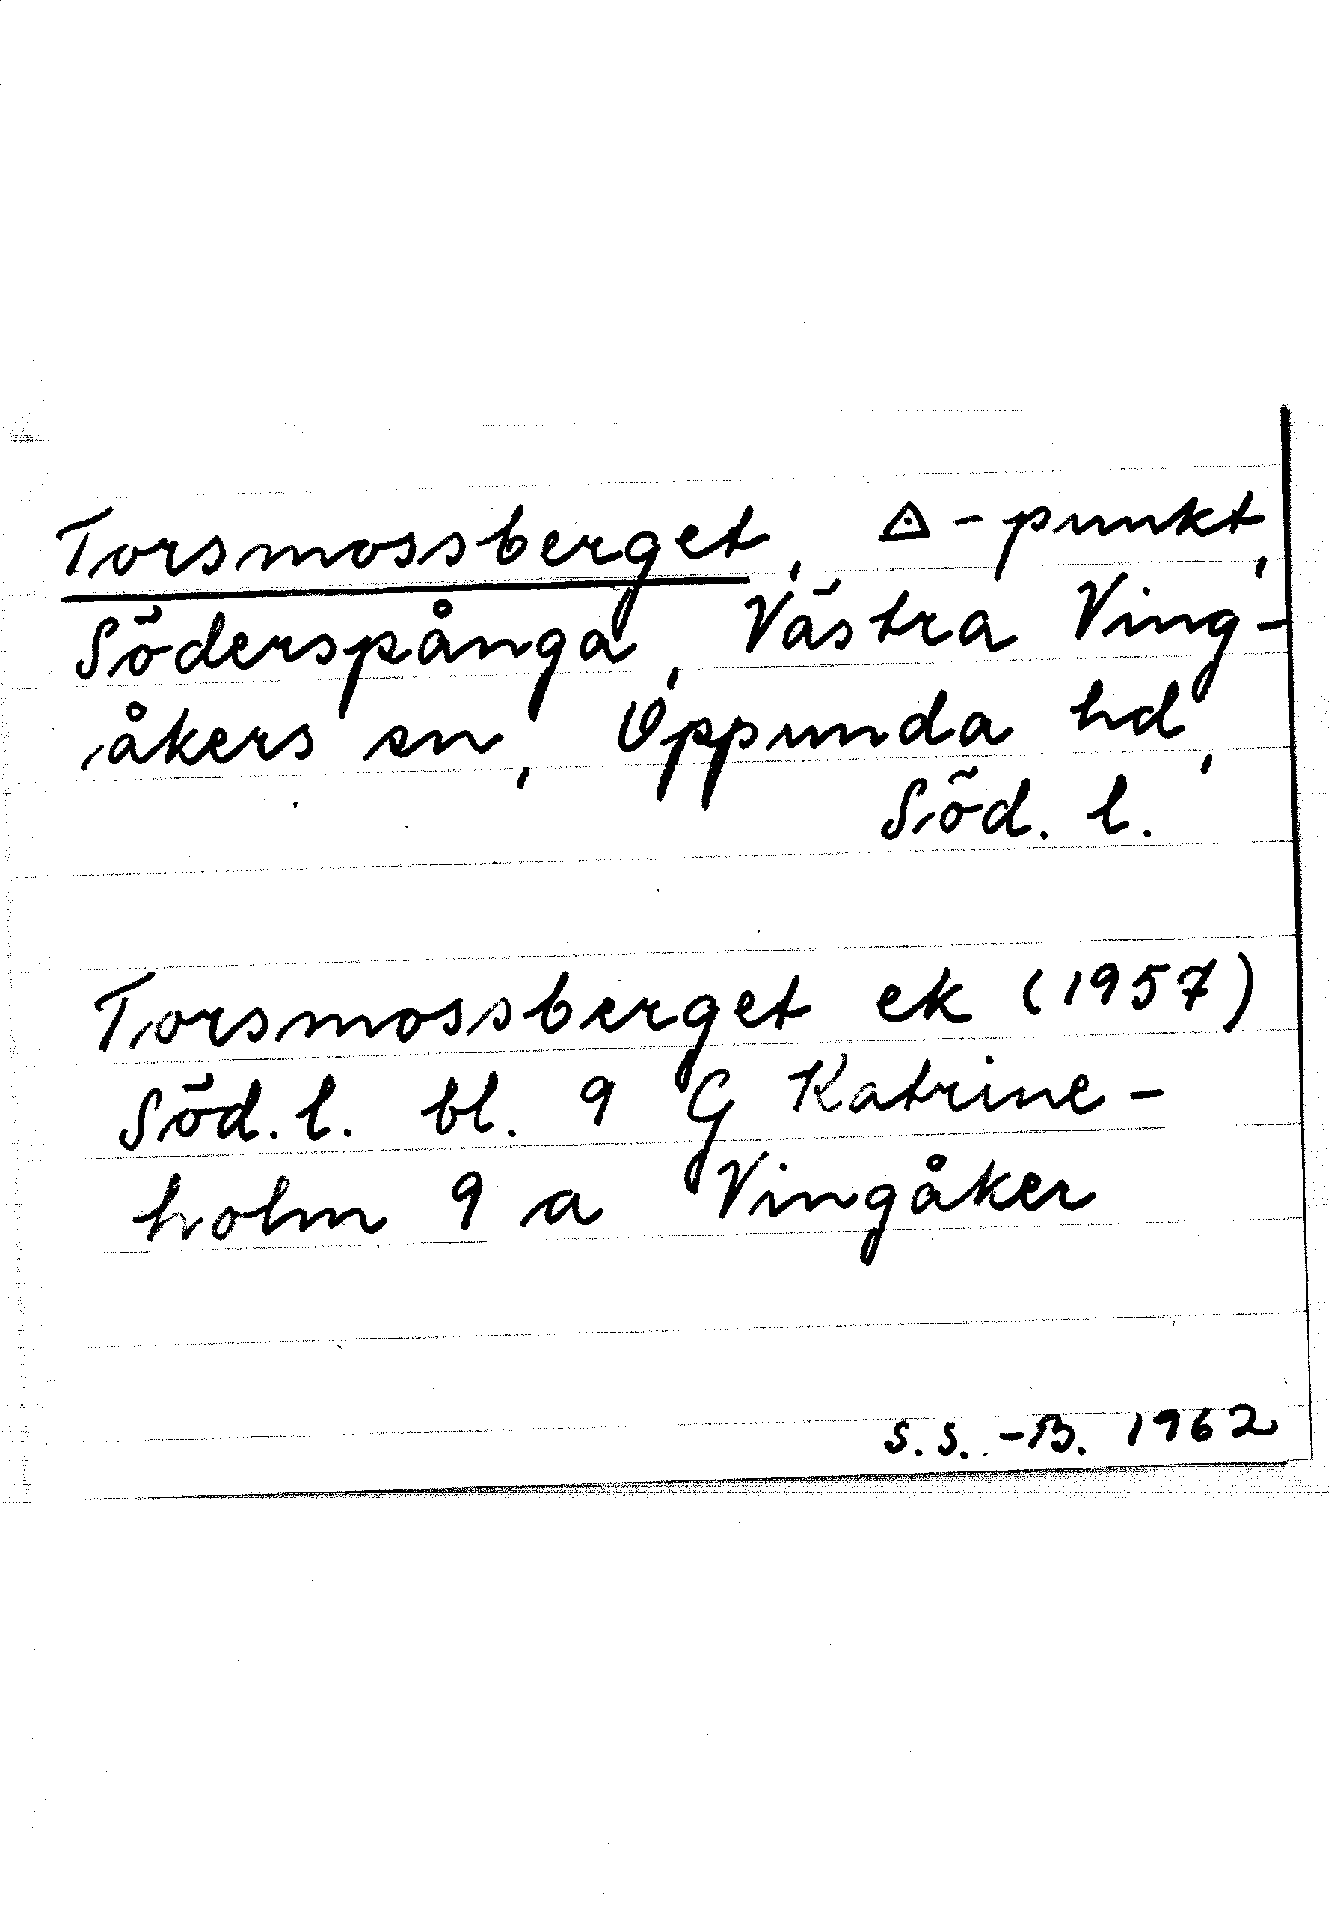 Torsmossberget, ◬-punkt,
Söderspånga, Västra Ving-
åkers sn, Oppunda hd,
Söd. l.
Torsmossberget ek (1957)
Söd. l. bl. 9 G Katrine-
holm 9 a Vingåker
S.S.-B. 1962